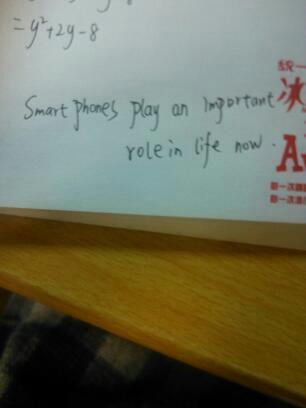 = y²+2y-8
Smart phones play an important
role in life now.
統一
冰
A